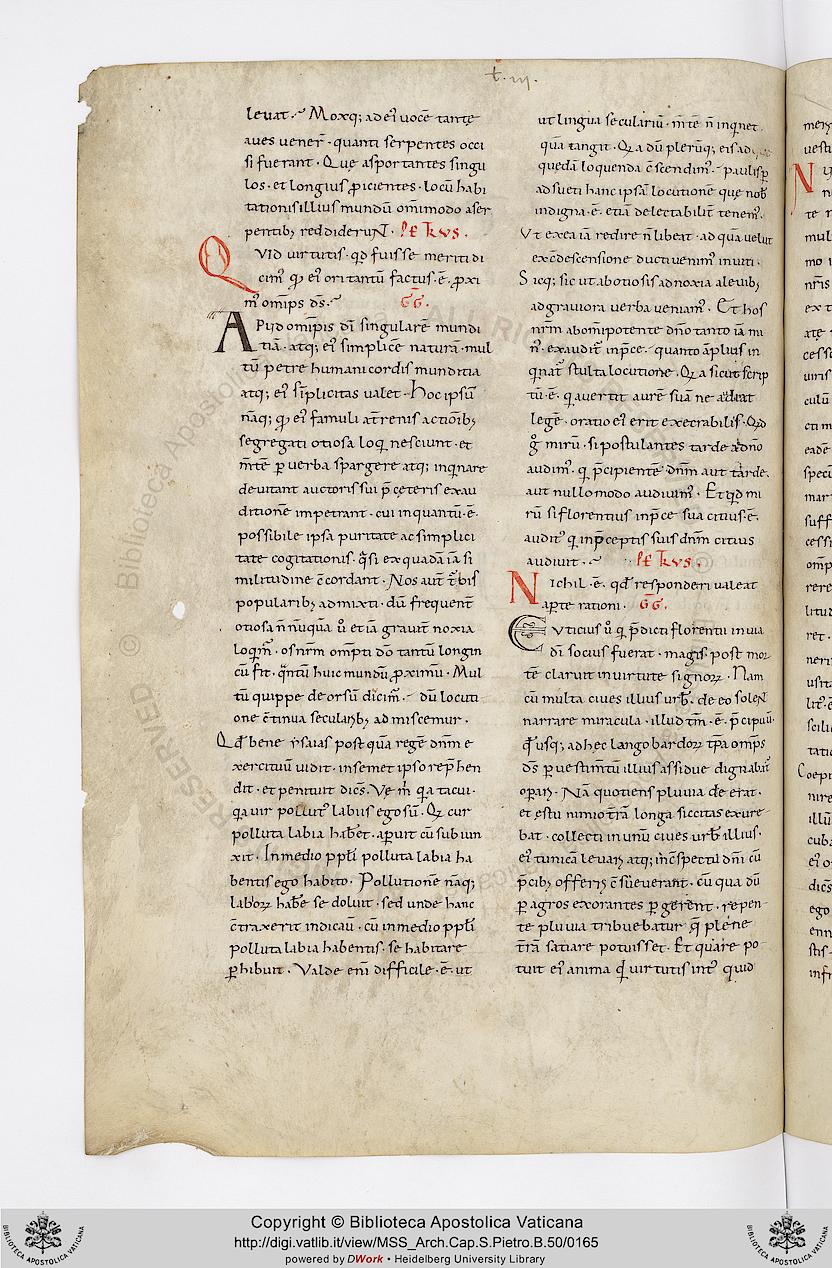 t. iii.
leuat. Moxq; ad ei᷒ uocē tantę
aues uener̄. quanti serpentes occi
si fuerant. Quę asportantes singu
los. et longius ꝓicientes. locū habi
tationis illius mundū om̄imodo a ser
pentib; reddiderunt. PETRVS.
QVID uirtutis. qd fuisse meriti di
cim᷒ qđ ei᷒ ori tantū factus .ē. ꝓxi
m᷒ om̄ips ds̄. GḠ.
APud om̄ipis dī singularē mundi
tiā. atq; ei᷒ simplicē naturā. mul
tū petre humani cordis munditia
atq; ei᷒ sīplicitas ualet. Hoc ipsū
nāq; qđ ei᷒ famuli a t̄renis actiōib;
segregati otiosa loq nesciunt. et
m̄tē ꝑ uerba spargere atq; inqinare
deuitant auctoris sui p̄ cęteris exau
ditionē impetrant. cui inquantū .ē.
possibile ipsa puritate ac simplici
tate cogitationis. q̄si ex quadā iā si
militudine c̄cordant. Nos aut̄ t̄bis
popularib; admixti. dū frequent̄
otiosa n̄nūquā u᷒ et iā grauit̄ noxia
loqm̄. os nr̄m om̄pti dō tantū longin
cū fit. q̄ntū huic mundū ꝓximū. Mul
tū quippe deorsū dicim᷒. dū locuti
one c̄tinua secularib; admiscemur.
Qđ bene ysaias postquā regē dn̄m e
xercituū uidit. in semet ipso rep̄hen
dit. et penituit dicēs. Vę m̄ qa tacui.
qa uir pollut᷒ labiis ego sū. Qꝛ cur
polluta labia hab&et. apuit cū subiun
xit. In medio pp̄li polluta labia ha
bentis ego habito. Pollutionē nāq;
laborꝝ hab̄e se doluit. sed unde hanc
c̄traxerit indicaū. cū in medio pp̄li
polluta labia habentis. se habitare
ꝑhibuit. Valde enī difficile .ē. ut
ut lingua seculariū. m̄tē n̄ inqinet.
quā tangit. Qꝛ a dū plerūq; eis ad
quedā loquenda c̄scendim᷒. paulisꝑ
adsueti hanc ipsā locutionē quę nob̄
indigna .ē. etiā delectabilit̄ tenem᷒.
Vt ex ea iā redire n̄ libeat. ad quā uelut
ex c̄descensione ducti uenim᷒ inuiti.
Sicq; fit ut ab otiosis ad noxia a leuib;
ad grauiora uerba ueniam᷒. Et hos
nr̄m ab om̄ipotente dn̄o tanto iā mi
n᷒. exaudit̄ in p̄ce. quanto āplius in
qinat̄ stulta locutione. Qꝛ a sicut scrip
tū .ē. q auertit aurē suā ne audiat
legē. oratio ei᷒ erit execrabilis. Qđ
ḡ mirū. si postulantes tarde a dn̄o
audim᷒. q p̄cipientē dn̄m aut tarde.
aut nullo modo audiuim᷒. Et qd mi
rū si florentius in p̄ce sua citius .ē.
audit᷒ q in p̄ceptis suis dn̄m citius
audiuit. PETRVS.
NIchil .ē. qđ responderi ualeat
aperte rationi. GḠ.
EVticius u᷒ q p̄dicti florentii in uia
dī socius fuerat. magis post mor
tē claruit in uirtute signorꝝ. Nam
cū multa ciues illius urb̄. de eo solent
narrare miracula. illud tm̄ .ē. p̄cipuū.
qđ usq; ad hęc langobardorꝝ tp̄a om̄ps
ds̄ ꝑ uestim̄tū illius assidue dignabat᷒
opari. Nā quotiens pluuia deerat.
et ęstu nimio t̄rā longa siccitas exure
bat. collecti in unū ciues urb̄ illius.
ei᷒ tunicā leuare atq; in c̄spectu dn̄i cū
p̄cib; offerre c̄sueuerant. cū qua dū
ꝑ agros exorantes ꝑgerent. repen
te pluuia tribuebatur q̄ plene
t̄rā satiare potuisset. Et quare po
tuit ei᷒ anima qd uirtutis int᷒ quid
Copyright © Biblioteca Apostolica Vaticana
http://digi.vatlib.it/view/MSS_Arch.Cap.S.Pietro.B.50/0165
powered by DWork • Heidelberg University Library